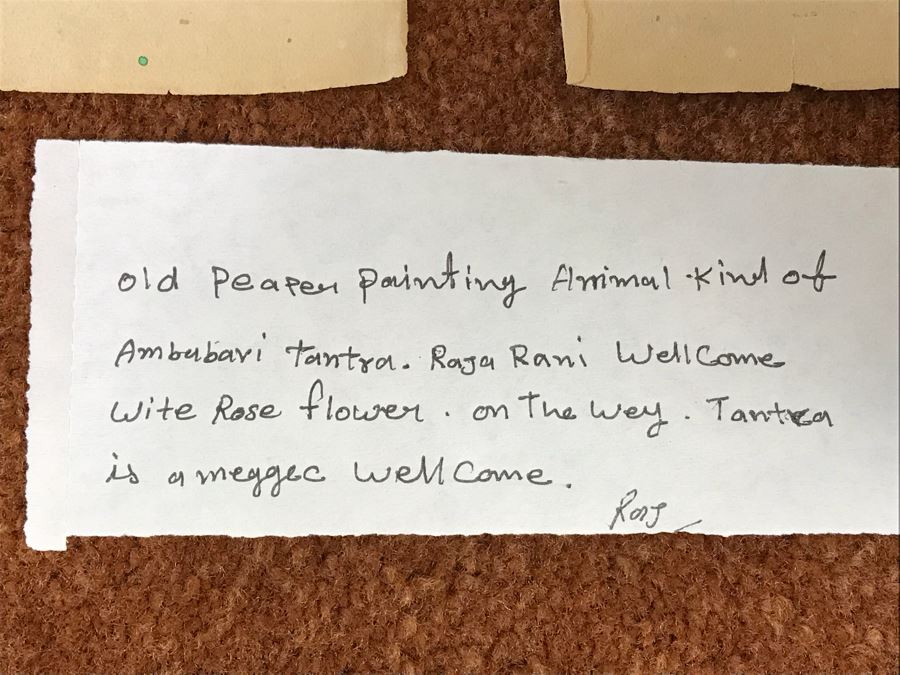 old Peaper Painting Animal kind of
Ambubari Tantra. Raja Rani Wellcome
Wite Rose flower. on The Wey. Tantra
is a meggec Wellcome.